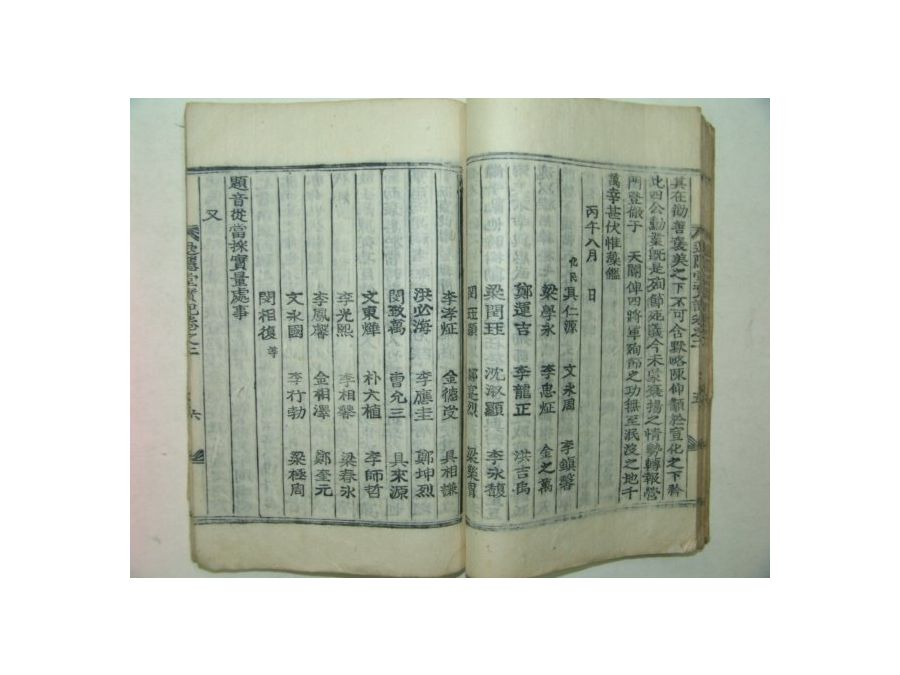 其在勸善褒美之下不可含默略陳仰籲於宣化之下幹
此四公勳業旣是殉節死義今未蒙褒揚之情勢轉報營
門登徹于 天閽俾四將軍殉節之功撫至泯沒之地千
萬幸甚伏惟藻鑑
丙午八月 日
化民 具仁源 文永周 李鎭馨
梁學永 李思烶 金之萬
鄭運吉 李龍正 洪吉禹
梁閔珏 沈淑顯 李永馥
李孝烶 金德受 具相謙
洪必海 李應圭 鄭坤烈
閔致萬 曺允三 具來源
文東燁 朴大植 李師哲
李光熙 李相馨 梁春永
李鳳馨 金相澤 鄭奎元
文永國 李行勃 梁極周
閔相復 等
題音從當採實量處事
又
堂實記卷之二 六